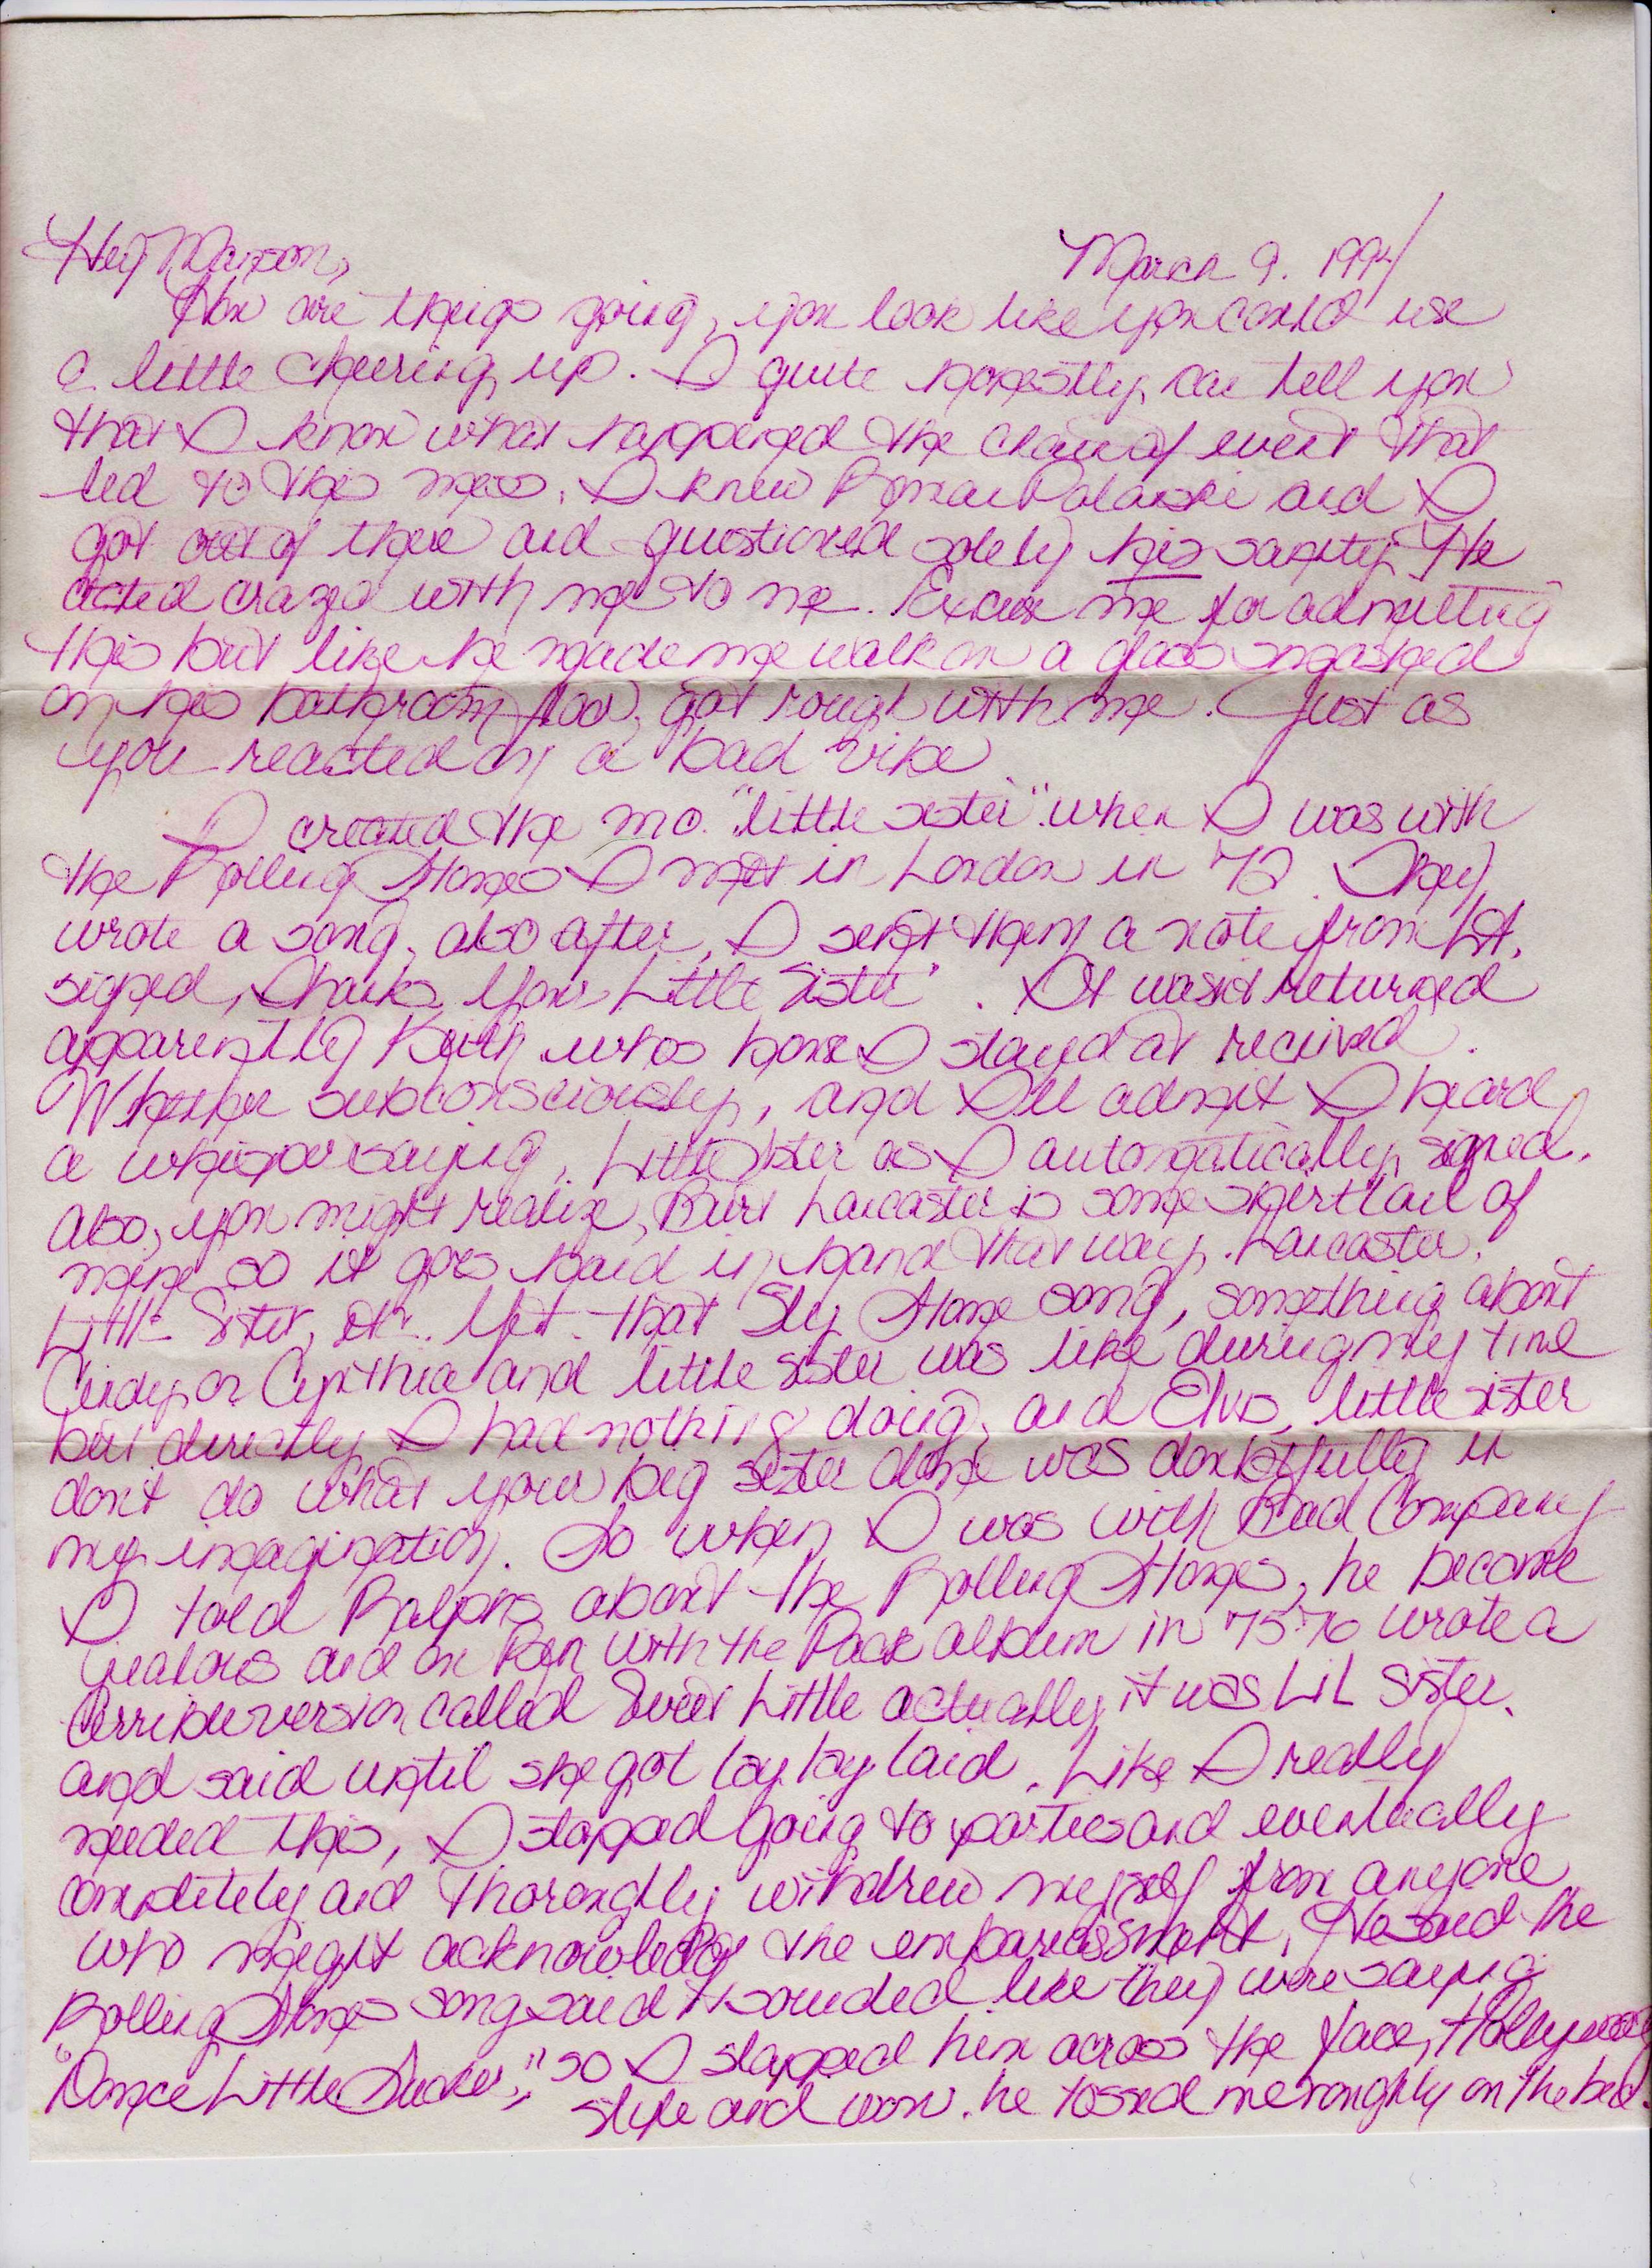 Hey Manson, March 9. 1994
How are things going, you look like you could use
a little cheering up. I quite honestly can tell you
that I know what happened the chain of event that
led to this mess. I knew Roman Polanski and I
got out of there and questioned solely his sanity. He
acted crazed with me to me. Excuse me for admitting
this but like he made me walk on a glass smashed
on his bathroom floor, got rough with me. Just as
you reacted on a bad vibe
I created the mo. "little sister" when I was with
the Rolling Stones I met in London in '72. They
wrote a song, also after, I sent them a note from LA.
signed, Thanks, Your Little Sister". It wasn't returned
apparently Keith whos home I stayed at recieved.
Whether subconsciously, and I'll admit I heard
a whisper saying, Little Sister as I automatically signed.
Also, you might realize, Burt Lancaster is some shirttail of
mine so it goes hand in hand that way. Lancaster,
Little Sister, etc. Yet that Sly Stone song, something about
Cindy or Cynthia and little sister was like during my time
but directly I had nothing doing, and Elvis, little sister
don't do what your big sister done was doubtfully in
my imagination. So when I was with Bad Company
I told Ralphs about the Rolling Stones, he became
jealous and on Run with the Pack album in '75-'76 wrote a
terrible version called Sweet Little actually it was LiL Sister.
and said until she got lay lay laid. Like I really
needed this, I stopped going to parties and eventually
completely and thoroughly withdrew myself from anyone
who might acknowledge the embarassment. He said the
Rolling Stones song said it sounded like they were saying
"Dance Little Sucker," so I slapped him across the face, Hollywood
style and won. he tossed me roughly on the bed.